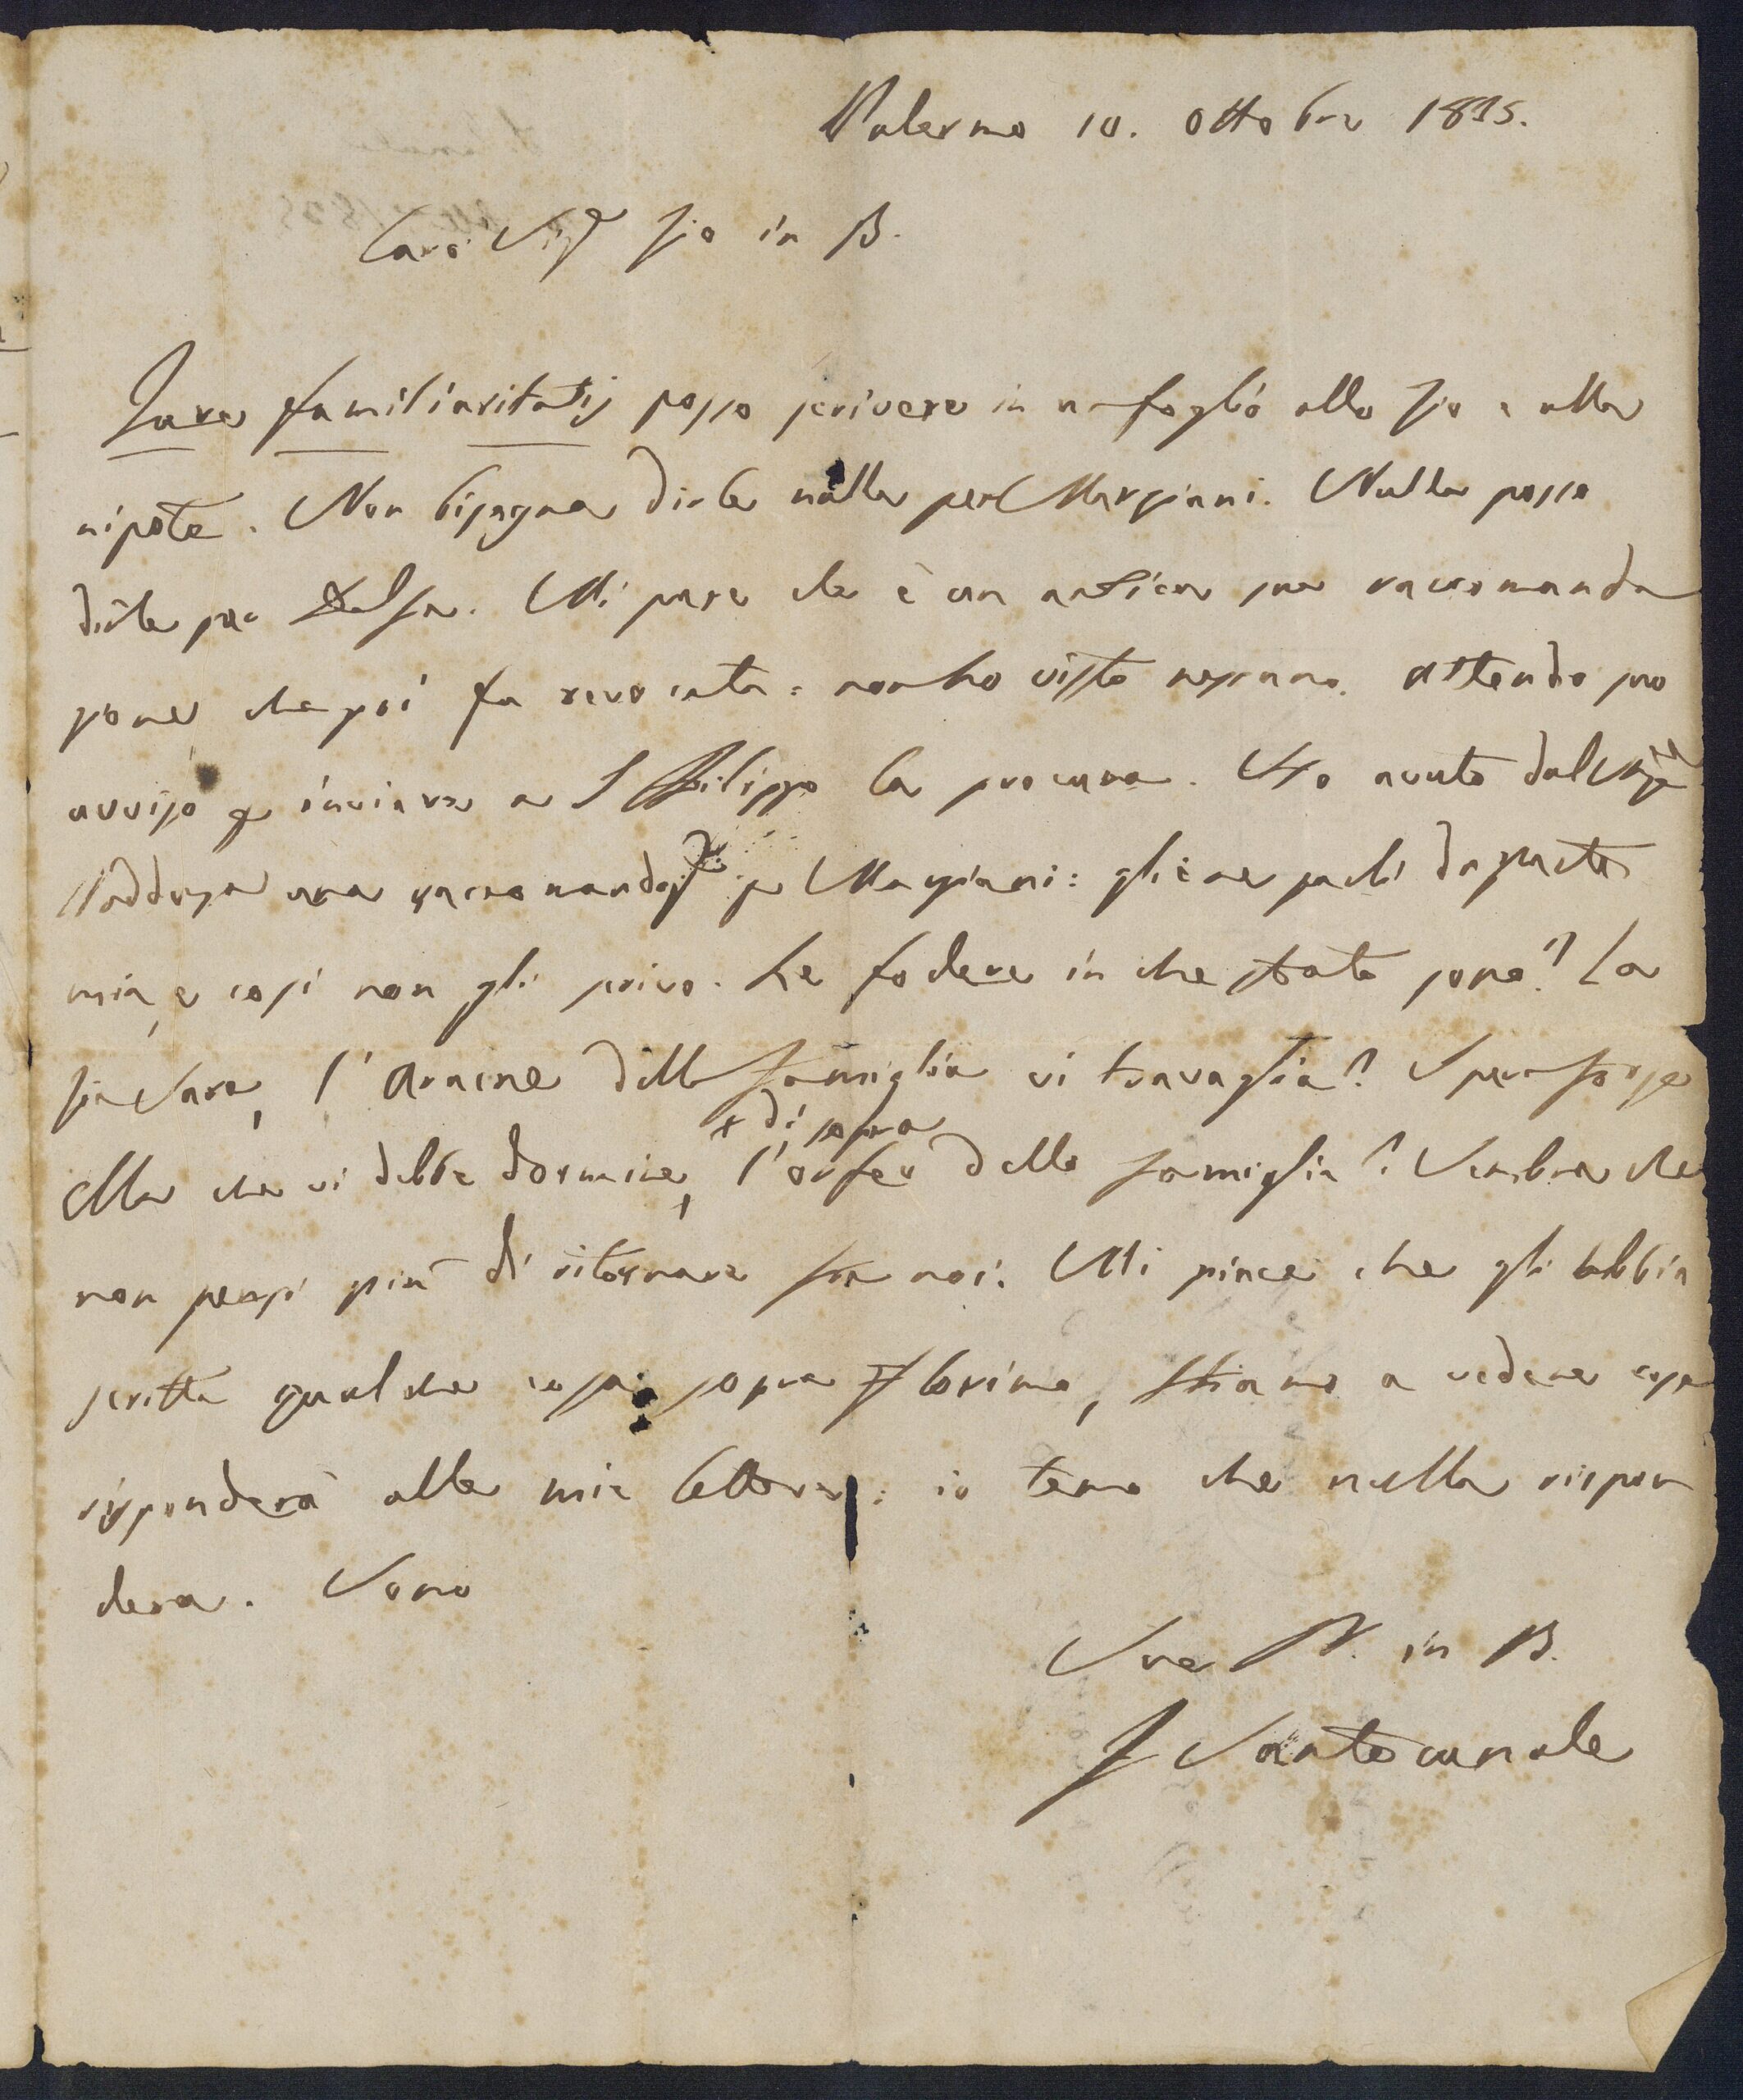 Palermo 10. Ottobre 1835.
Caro Sigr Zio in B.
Jure familiaritatis posso scrivere in un foglio allo Zio e alla
nipote. Non bisogna dirle nulla per Marsiani. Nulla posso
dirle per. Mi pare che è un antica sua raccomanda
zione che poi fu revocata: non ho visto nessuno. Attendo suo
avviso per inviare a S Filippo la procura. Ho avuto dal
una per Marsiani: gliene parli da parte
mia, e così non gli scrivo. Le fodere in che stato sono? La
zia Sara, l'Aracne della famiglia vi travaglia? Spera forse
Ella che vi debba dormire, l'orfeo della famiglia?
+ di sopra
Sembra che
non pensi più di ritornare fra noi. Mi piace che gli abbia
scritto qualche cosa sopra Florimo, stiamo a vedere cosa
risponderà alle mie lettere: io temo che nulla rispon
derà. Sono
Suo N. in B.
F Santocanale